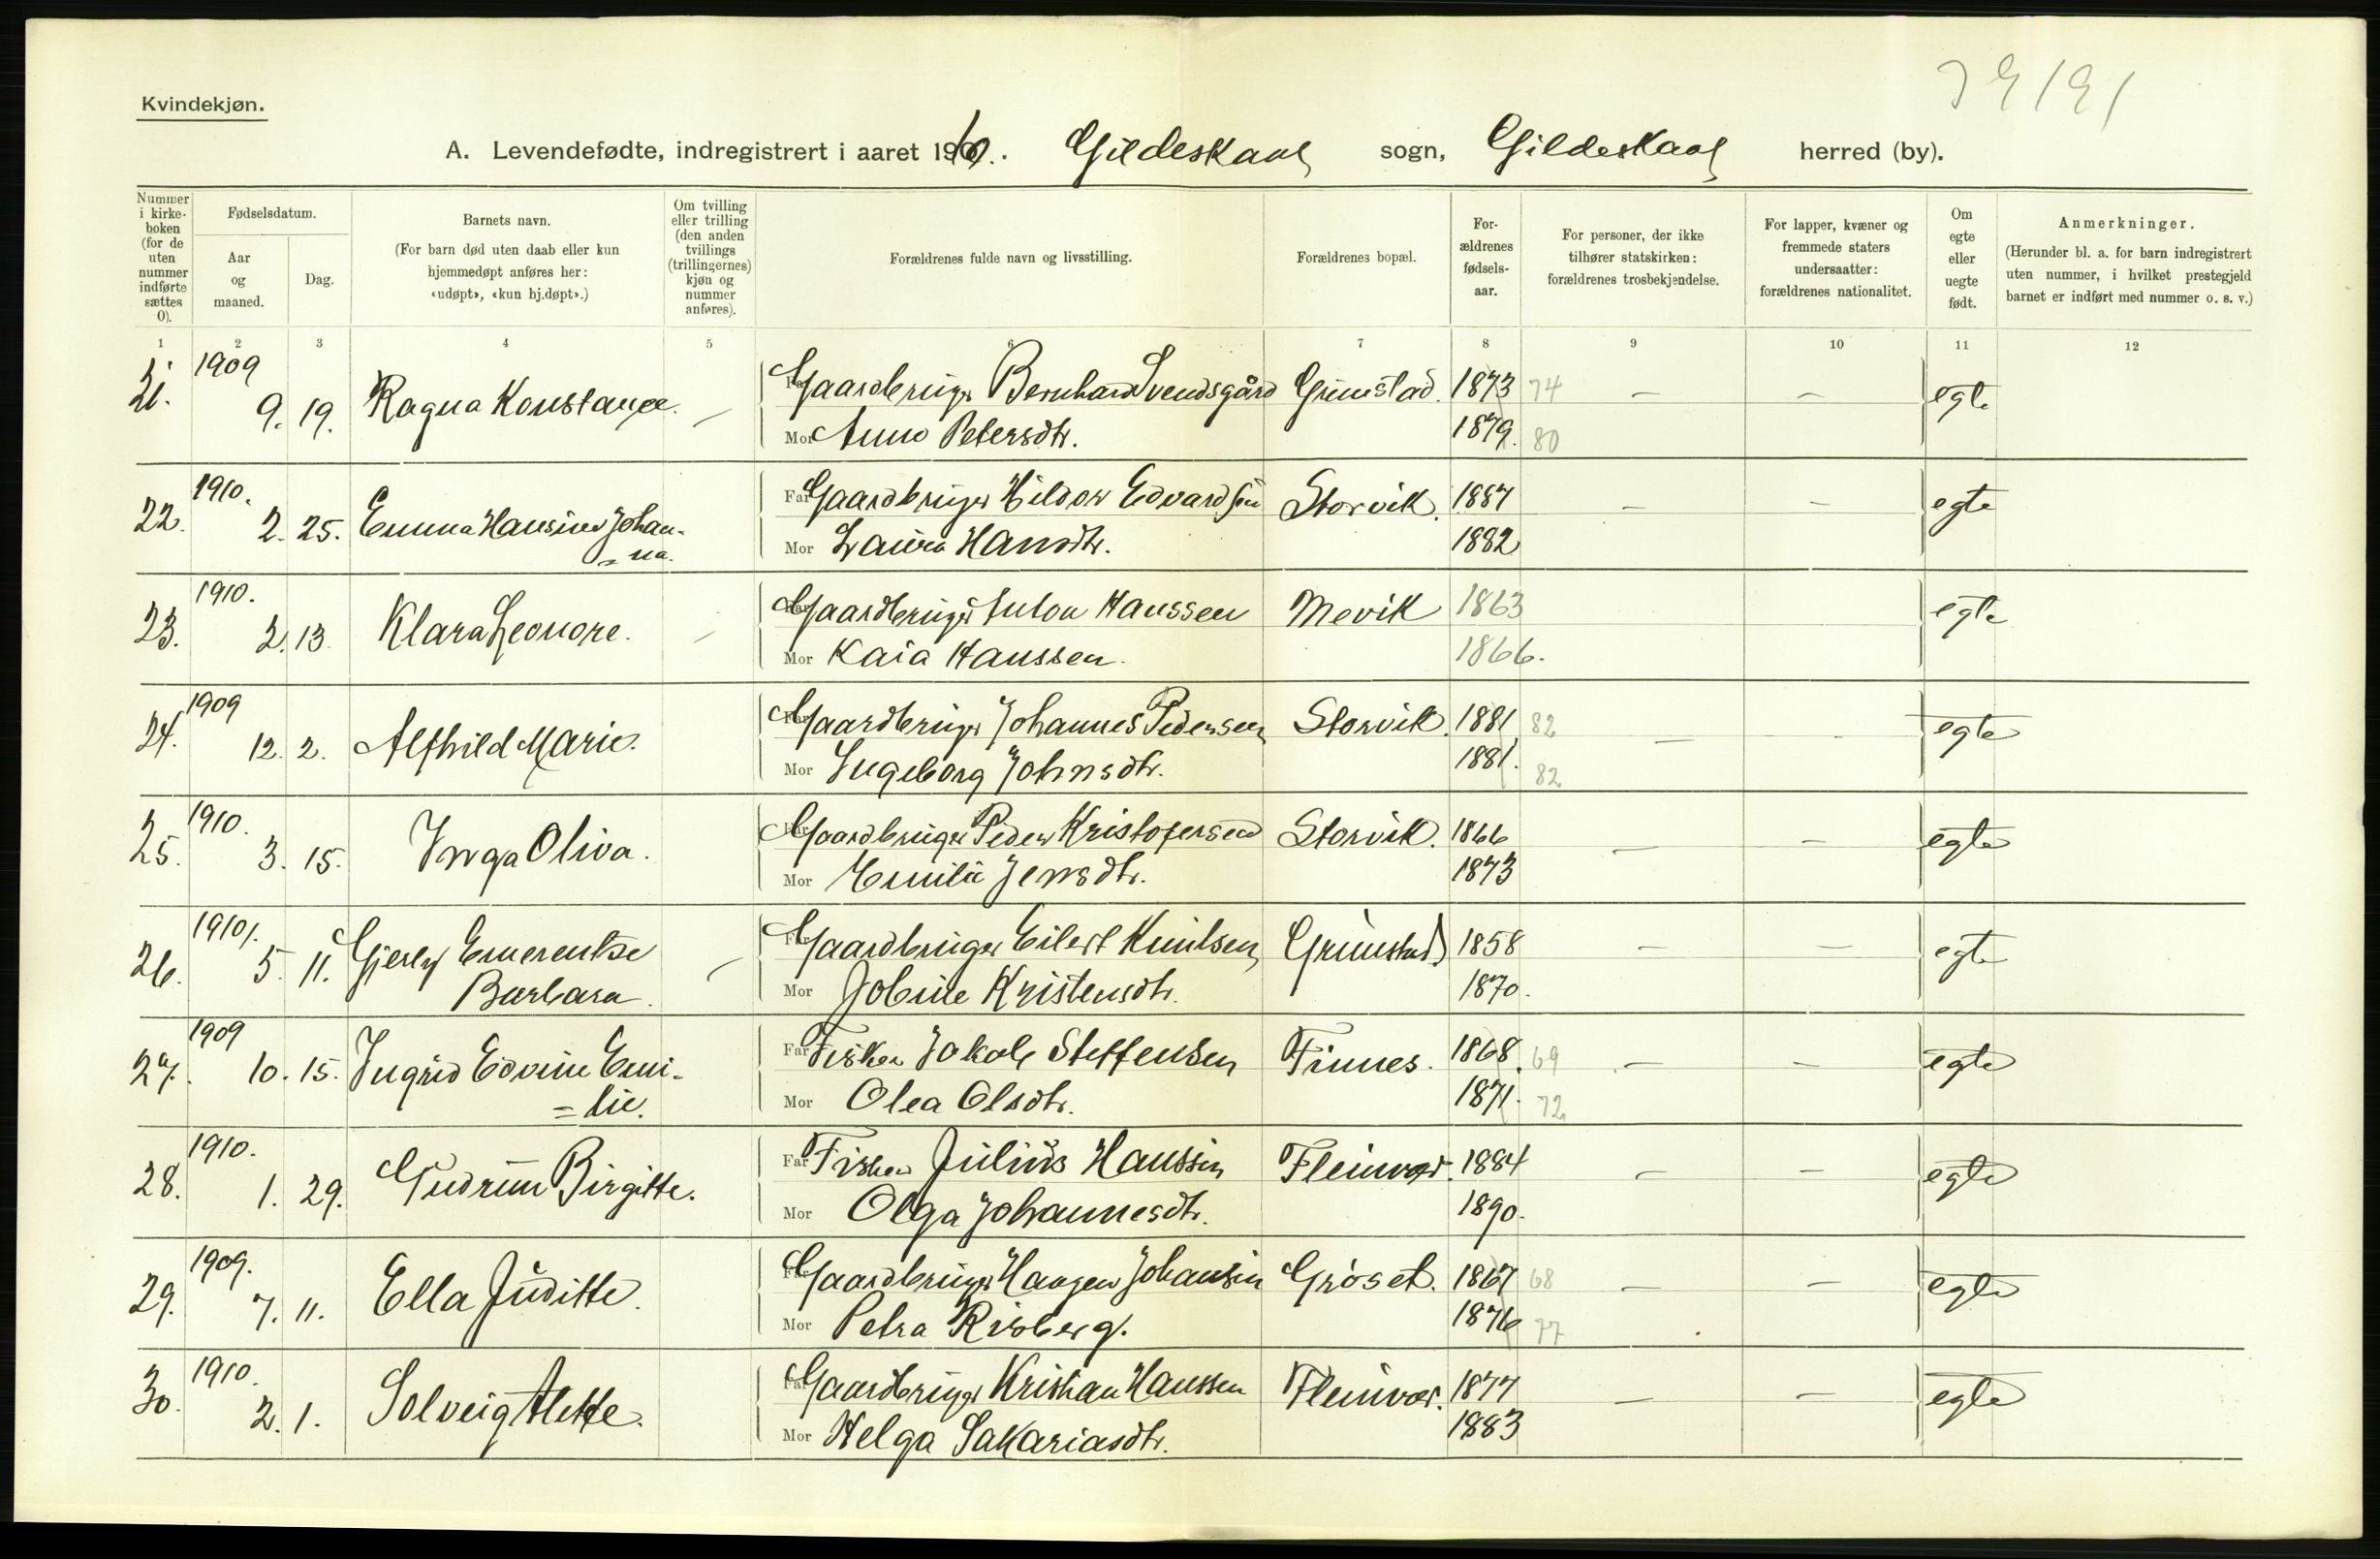 Kvindekjøn.
A. Levendefødte, indregistrert i aaret 1910. Gildeskaal sogn, Gildeskaal herred (by).
Nummer i kirke-boken (for de uten nummer indførte sættes 0).
Fødselsdatum.
Aar og maaned.
Dag.
Barnets navn.
(For barn død uten daab eller kun hjemmedøpt anføres her: «udøpt», «kun hj.døpt».)
Om tvilling eller trilling (den anden tvillings (trillingernes) kjøn og nummer anføres).
Forældrenes fulde navn og livsstilling.
Forældrenes bopæl.
For-ældrenes fødsels-aar.
For personer, der ikke tilhører statskirken: forældrenes trosbekjendelse.
For lapper, kvæner og fremmede staters undersaatter: forældrenes nationalitet.
Om egte eller uegte født.
Anmerkninger.
(Herunder bl. a. for barn indregistrert uten nummer, i hvilket prestegjeld barnet er indført med nummer o. s. v.)
1 2 3 4 5 6 7 8 9 10 11 12
21. 1909 9. 19. Ragna Konstance. — Far Gaardbruger Bernhard Svendsgård Grimstad. 1873 74 — — egte
Mor Anna Petersdtr. 1879. 80
22. 1910. 2. 25. Emma Hansine Johan-
=na.
Far Gaardbruger Hildor Edvardsen Storvik. 1887 — — egte
Mor Laura Hansdtr. 1882
23. 1910. 2. 13. Klara Leonore. — Far Gaardbruger Anton Hanssen Mevik 1863 egte
Mor Kaia Hanssen. 1866.
24. 1909 12. 2. Alfhild Marie. Far Gaardbruger Johannes Pedersen Storvik. 1881 82 — - egte
Mor Ingeborg Johnsdtr. 1881. 82
25. 1910. 3. 15. Inga Oliva. Far Gaardbruger Peder Kristofersen Storvik. 1866 — — egte
Mor Emilie Jensdtr. 1873
26. 1910. 5. 11. Gjerly Emerentse
Barbara.
— Far Gaardbruger Eilert Knutsen Grimstad 1858 — — egte
Mor Jobine Kristensdtr. 1870.
27. 1909 10. 15. Ingrid Edvine Emi-
=lie.
Far Fisker Jakob Steffensen Finnes. 1868. 69 — — egte
Mor Olea Olsdtr. 1871. 72
28. 1910. 1. 29. Gudrun Birgitte. Far Fisker Julius Hanssen Fleinvær. 1884 — — egte
Mor Olga Johannesdtr. 1890.
29. 1909. 7. 11. Ella Juditte. Far Gaardbruger Johansen Grøset. 1867 68 — — egte
Mor Petra Risberg. 1876 77
30. 1910. 2. 1. Solveig Alette. Far Gaardbruger Kristian Hanssen Fleinvær. 1877 — — egte
Mor Helga Sakariasdtr. 1883